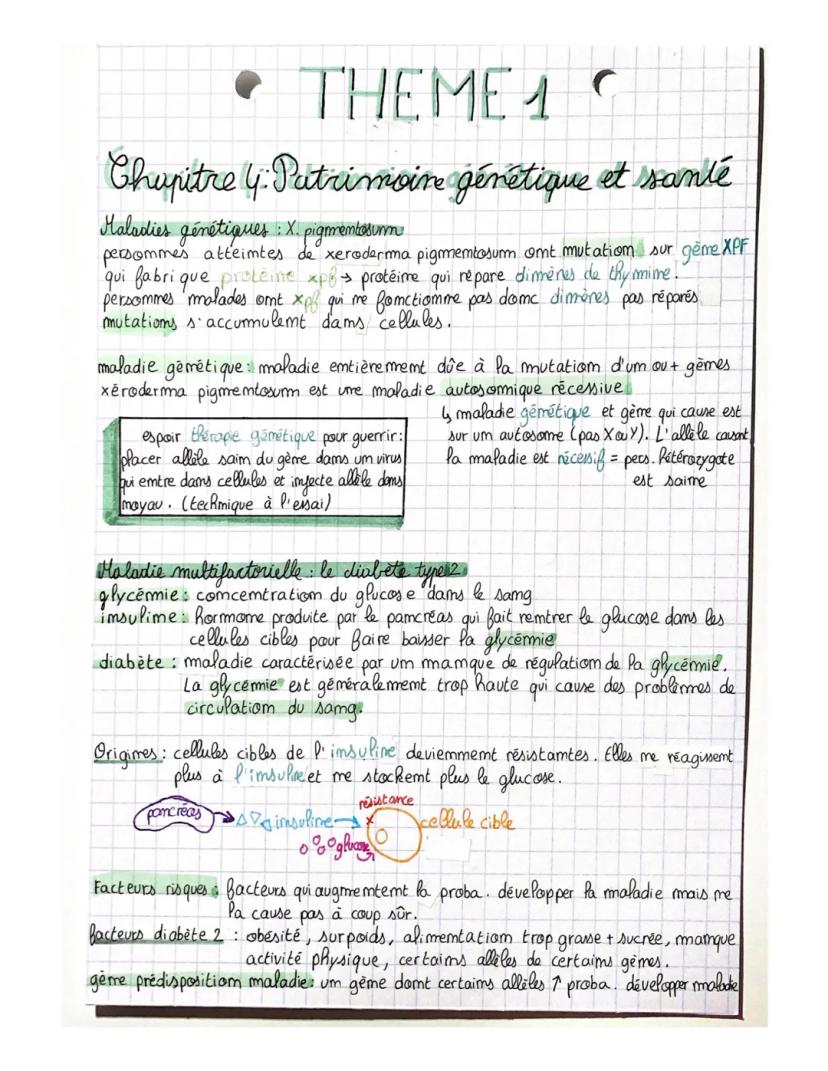 THEME 1
Chapitre 4: Patrimoine génétique et santé
Maladies génétiques : X. pigmentosum
personnes atteintes de xeroderma pigmentosum ont mutation sur gène XPF
qui fabrique protéine xpf → protéine qui répare dimères de thymine.
personnes malades ont xpf qui ne fonctionne pas donc dimères pas réparés
mutations s'accumulent dans cellules.
maladie génétique : maladie entièrement dûe à la mutation d'un ou + gènes
xéroderma pigmentosum est une maladie autosomique récessive
↳ maladie génétique et gène qui cause est
sur un autosome (pas X ou Y). L'allèle causant
la maladie est récessif = pers. hétérozygote
est saine
espoir thérapie génétique pour guerrir :
placer allèle sain du gène dans un virus
qui entre dans cellules et injecte allèle dans
noyau. (technique à l'essai)
Maladie multifactorielle : le diabète type 2
glycémie : concentration du glucose dans le sang
insuline : hormone produite par le pancréas qui fait rentrer le glucose dans les
cellules cibles pour faire baisser la glycémie
diabète : maladie caractérisée par un manque de régulation de la glycémie.
La glycémie est généralement trop haute qui cause des problèmes de
circulation du sang.
Origines : cellules cibles de l'insuline deviennent résistantes. Elles ne réagissent
plus à l'insuline et ne stockent plus le glucose.
résistance
pancréas → insuline → x cellule cible
glucose
Facteurs risques : facteurs qui augmentent la proba. développer la maladie mais ne
la cause pas à coup sûr.
facteurs diabète 2 : obésité, surpoids, alimentation trop grasse + sucrée, manque
activité physique, certains allèles de certains gènes.
gène prédisposition maladie : un gène dont certains allèles ↑ proba. développer maladie